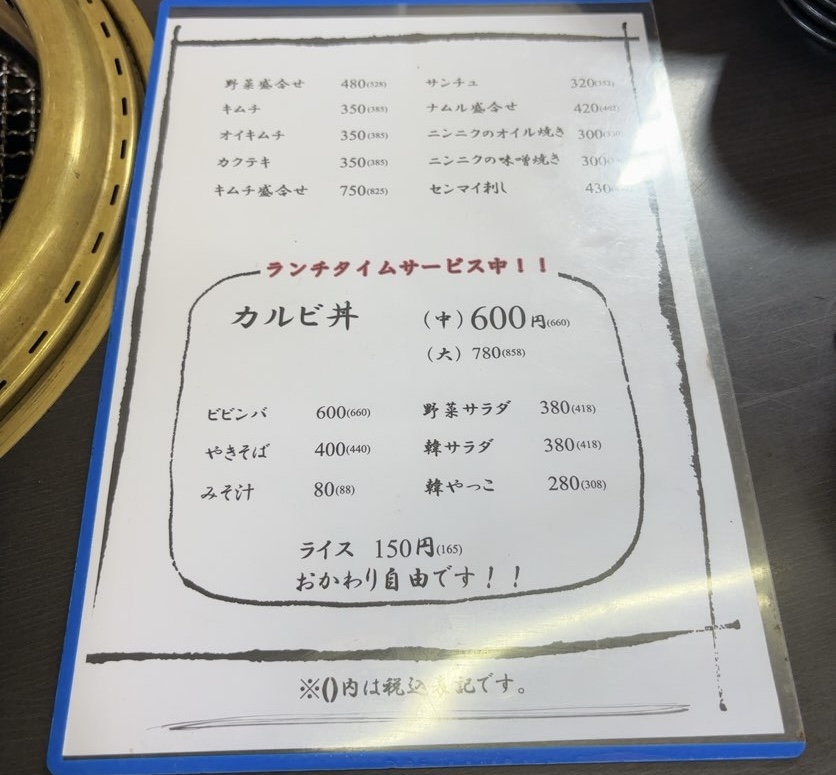 野菜盛合せ 480(528) サンチュ 320(352)
キムチ 350(385) ナムル盛合せ 420(462)
オイキムチ 350(385) ニンニクのオイル焼き 300
カクテキ 350(385) ニンニクの味噌焼き 300
キムチ盛合せ 750(825) センマイ刺し 430
ランチタイムサービス中！！
カルビ丼 （中）600円(660)
（大）780(858)
ビビンバ 600(660) 野菜サラダ 380(418)
やきそば 400(440) 韓サラダ 380(418)
みそ汁 80(88) 韓やっこ 280(308)
ライス 150円(165)
おかわり自由です！！
※()内は税込表記です。